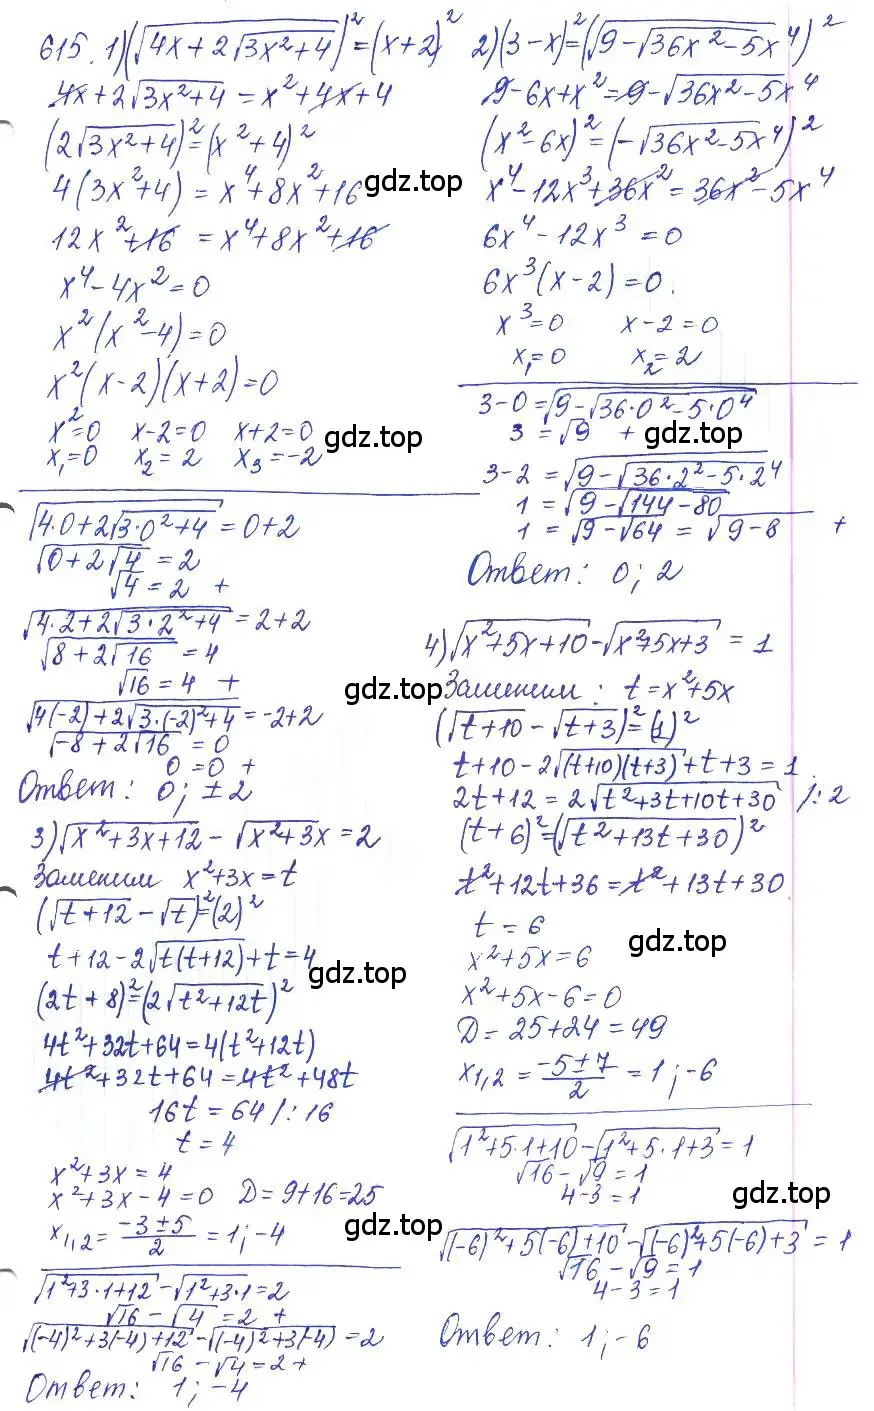 615. 1)(√(4x+2√(3x²+4)))²=(x+2)²
4x+2√(3x²+4) = x²+4x+4
(2√(3x²+4))²=(x²+4)²
4(3x²+4) = x⁴+8x²+16
12x²+16 = x⁴+8x²+16
x⁴-4x²=0
x²(x²-4)=0
x²(x-2)(x+2)=0
x²=0 x-2=0 x+2=0
x₁=0 x₂=2 x₃=-2
√(4·0+2√(3·0²+4)) = 0+2
√(0+2√4) = 2
√4 = 2 +
√(4·2+2√(3·2²+4)) = 2+2
√(8+2√16) = 4
√16 = 4 +
√(4(-2)+2√(3·(-2)²+4)) = -2+2
√(-8+2√16) = 0
0=0 +
Ответ: 0; ±2
3)√(x²+3x+12) - √(x²+3x) = 2
Заменим x²+3x=t
(√(t+12) - √t)²=(2)²
t+12-2√(t(t+12))+t=4
(2t+8)²=(2√(t²+12t))²
4t²+32t+64=4(t²+12t)
4t²+32t+64=4t²+48t
16t=64 /:16
t=4
x²+3x=4
x²+3x-4=0 D=9+16=25
x₁,₂= (-3±5)/2 = 1;-4
√(1²+3·1+12) - √(1²+3·1)=2
√16 - √4 = 2 +
√((-4)²+3(-4)+12) - √((-4)²+3(-4)) = 2
√16 - √4 = 2 +
Ответ: 1; -4
2)(3-x)²=(√(9-√(36x²-5x⁴)))²
9-6x+x²=9-√(36x²-5x⁴)
(x²-6x)²=(-√(36x²-5x⁴))²
x⁴-12x³+36x²=36x²-5x⁴
6x⁴-12x³=0
6x³(x-2)=0.
x³=0 x-2=0
x₁=0 x₂=2
3-0=√(9-√(36·0²-5·0⁴))
3=√9 +
3-2=√(9-√(36·2²-5·2⁴))
1=√(9-√(144-80))
1=√(9-√64) = √(9-8) +
Ответ: 0; 2
4)√(x²+5x+10)-√(x²+5x+3) = 1
Заменим: t=x²+5x
(√(t+10) - √(t+3))²=(1)²
t+10-2√((t+10)(t+3))+t+3=1
2t+12=2√(t²+3t+10t+30) /:2
(t+6)²=(√(t²+13t+30))²
t²+12t+36=t²+13t+30
t=6
x²+5x=6
x²+5x-6=0
D=25+24=49
x₁,₂= (-5±7)/2 = 1;-6
√(1²+5·1+10)-√(1²+5·1+3)=1
√16-√9=1
4-3=1
√((-6)²+5(-6)+10)-√((-6)²+5(-6)+3)=1
√16-√9=1
4-3=1
Ответ: 1;-6
gdz.top
gdz.top
gdz.top
gdz.top
gdz.top
gdz.top
gdz.top
gdz.top
gdz.top